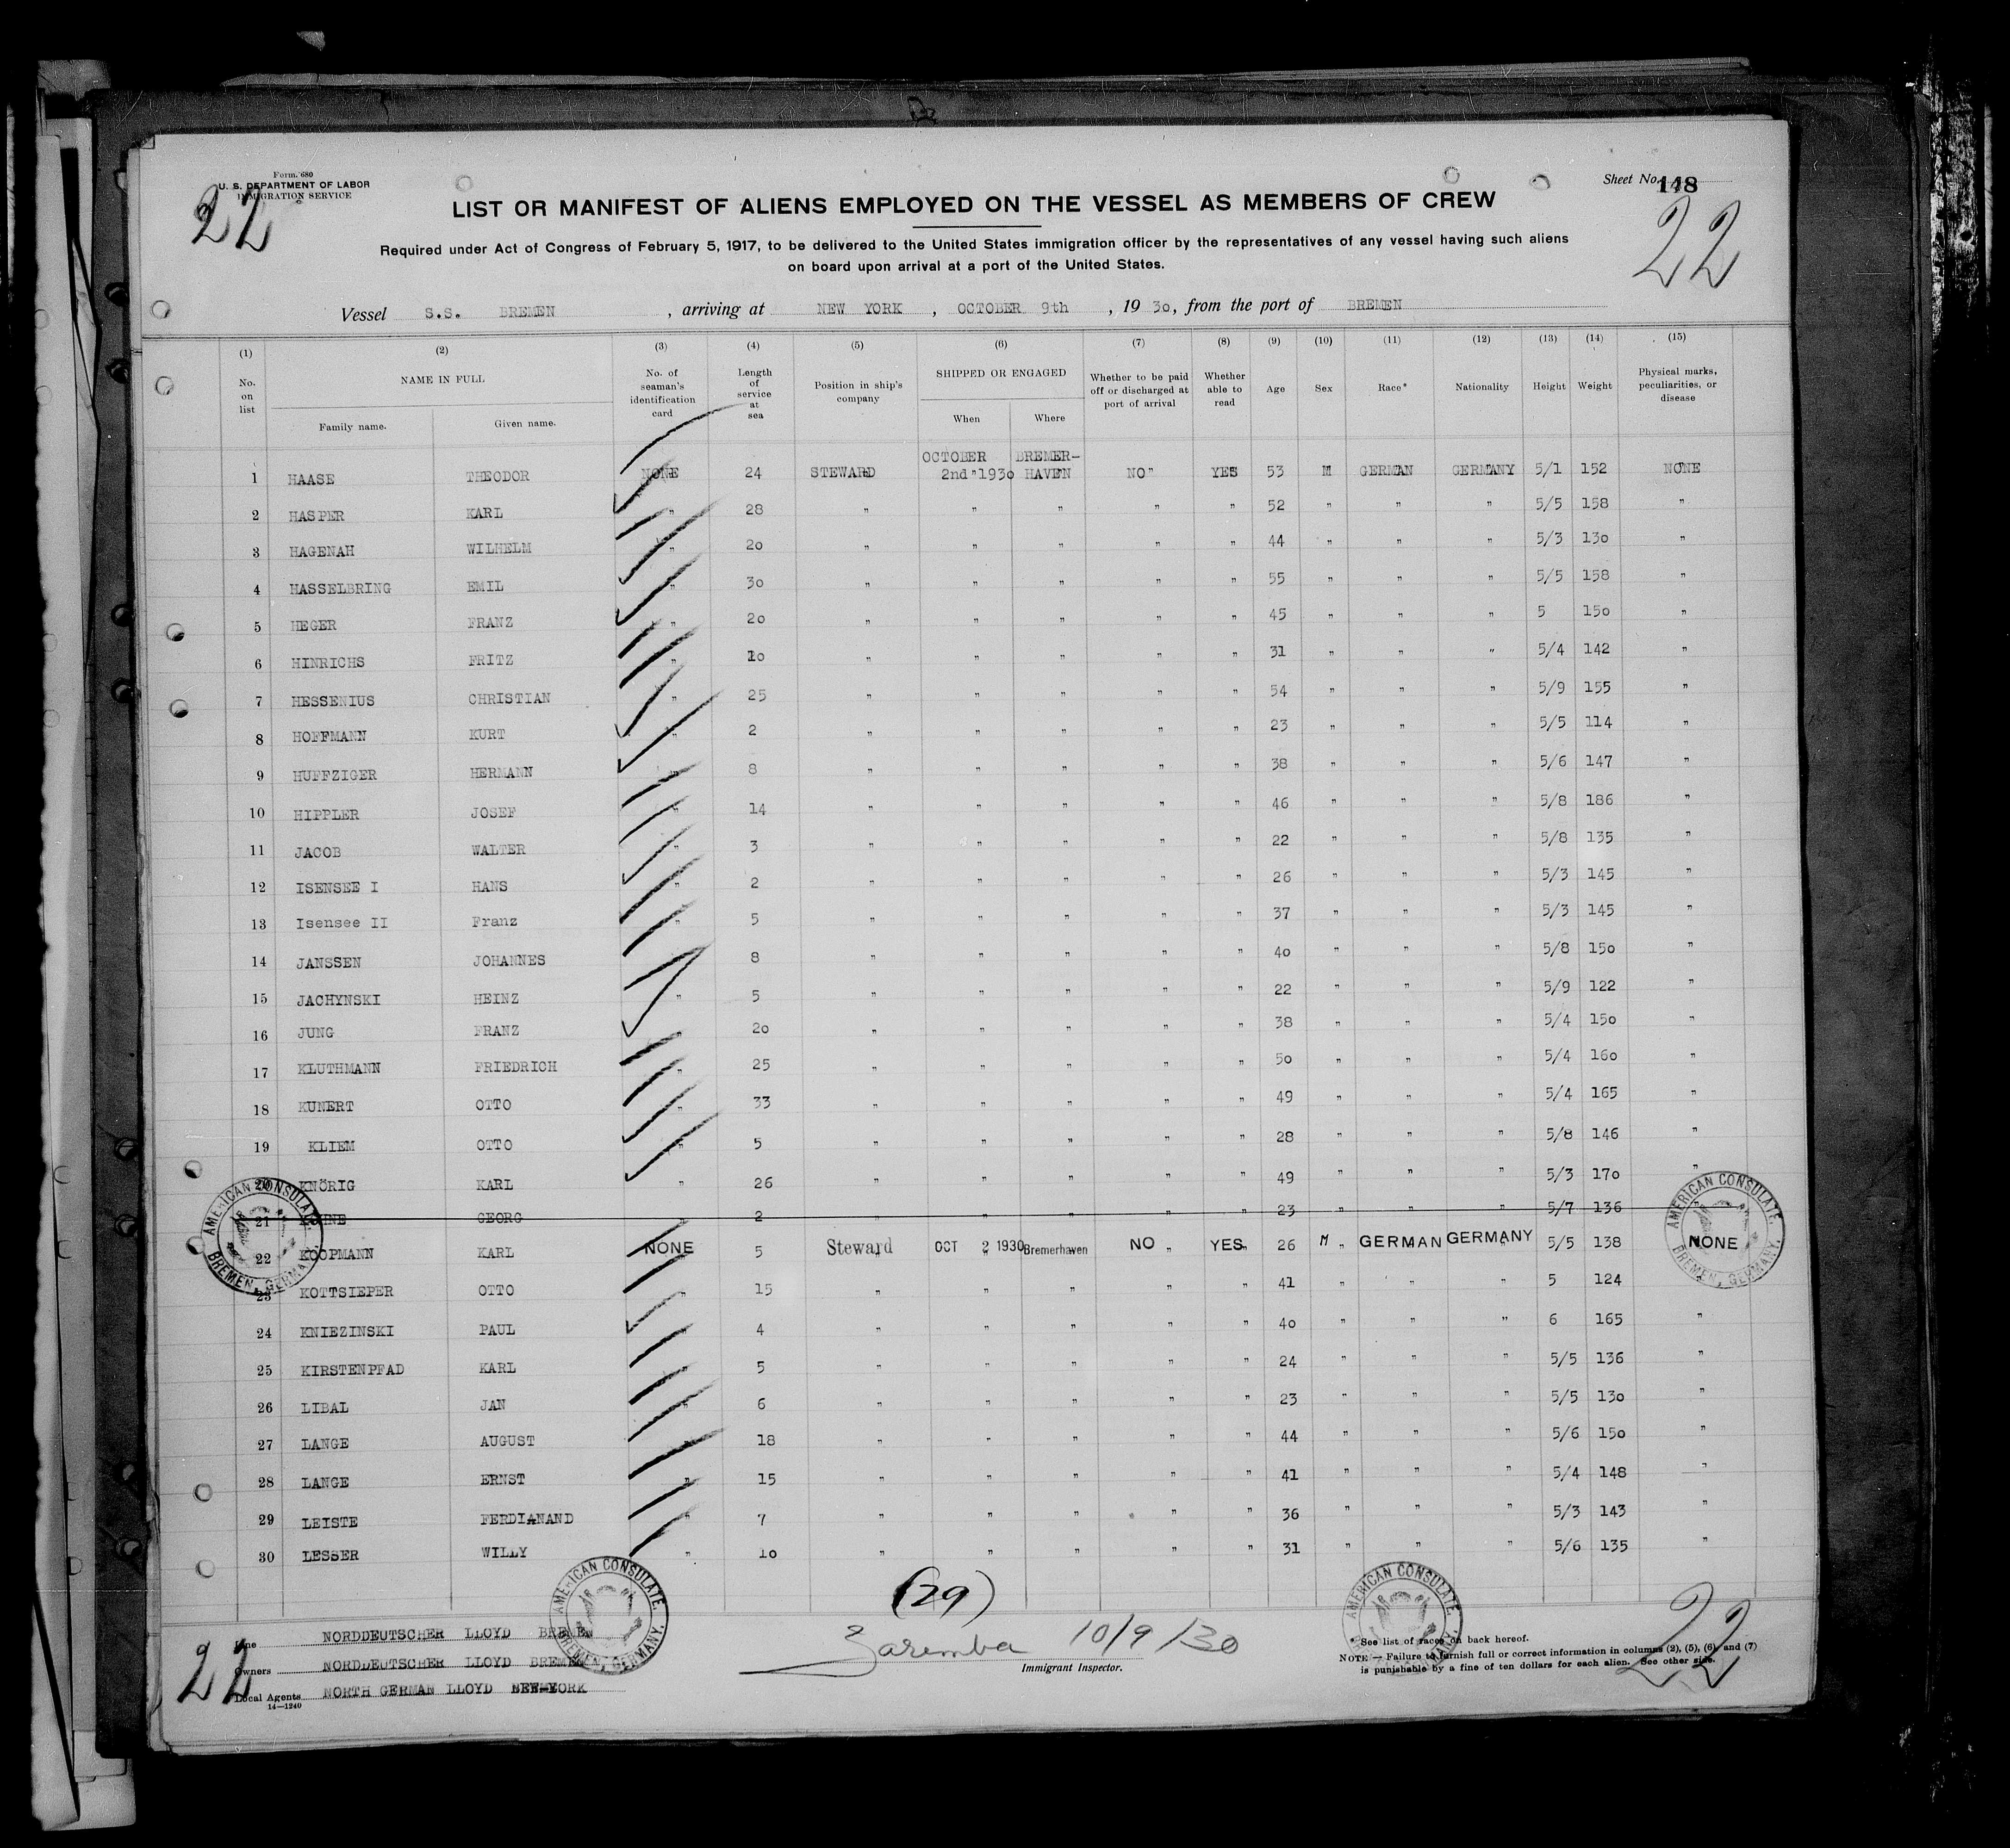 Form 680
U. S. DEPARTMENT OF LABOR
IMMIGRATION SERVICE
22
Sheet No. 148
22
LIST OR MANIFEST OF ALIENS EMPLOYED ON THE VESSEL AS MEMBERS OF CREW
Required under Act of Congress of February 5, 1917, to be delivered to the United States immigration officer by the representatives of any vessel having such aliens
on board upon arrival at a port of the United States.
Vessel S.S. BREMEN , arriving at NEW YORK , OCTOBER 9th , 19 30, from the port of BREMEN
(1) (2) (3) (4) (5) (6) (7) (8) (9) (10) (11) (12) (13) (14) (15)
No. on list NAME IN FULL Family name. Given name. No. of seaman's identification card Length of service at sea Position in ship's company SHIPPED OR ENGAGED When Where Whether to be paid off or discharged at port of arrival Whether able to read Age Sex Race* Nationality Height Weight Physical marks, peculiarities, or disease
OCTOBER BREMER-
1 HAASE THEODOR NONE 24 STEWARD 2nd 1930 HAVEN NO YES 53 M GERMAN GERMANY 5/1 152 NONE
2 HASPER KARL " 28 " " " " " 52 " " " 5/5 158 "
3 HAGENAH WILHELM " 20 " " " " " 44 " " " 5/3 130 "
4 HASSELBRING EMIL " 30 " " " " " 55 " " " 5/5 158 "
5 HEGER FRANZ " 20 " " " " " 45 " " " 5 150 "
6 HINRICHS FRITZ " 10 " " " " " 31 " " " 5/4 142 "
7 HESSENIUS CHRISTIAN " 25 " " " " " 54 " " " 5/9 155 "
8 HOFFMANN KURT " 2 " " " " " 23 " " " 5/5 114 "
9 HUFFZIGER HERMANN " 8 " " " " " 38 " " " 5/6 147 "
10 HIPPLER JOSEF " 14 " " " " " 46 " " " 5/8 186 "
11 JACOB WALTER " 3 " " " " " 22 " " " 5/8 135 "
12 ISENSEE I HANS " 2 " " " " " 26 " " " 5/3 145 "
13 Isensee II Franz " 5 " " " " " 37 " " " 5/3 145 "
14 JANSSEN JOHANNES 8 " " " " " 40 " " " 5/8 150 "
15 JACHYNSKI HEINZ " 5 " " " " " 22 " " " 5/9 122 "
16 JUNG FRANZ " 20 " " " " " 38 " " " 5/4 150 "
17 KLUTHMANN FRIEDRICH " 25 " " " " " 50 " " " 5/4 160 "
18 KUNERT OTTO " 33 " " " " " 49 " " " 5/4 165 "
19 KLIEM OTTO " 5 " " " " " 28 " " " 5/8 146 "
20 KNÖRIG KARL " 26 " " " " " 49 " " " 5/3 170 "
21 GEORG 2 " " " " " 23 " " " 5/7 136
22 KOOPMANN KARL NONE 5 Steward OCT 2 1930 Bremerhaven NO " YES " 26 M " GERMAN GERMANY 5/5 138 NONE
23 KOTTSIEPER OTTO " 15 " " " " " 41 " " " 5 124
24 KNIEZINSKI PAUL " 4 " " " " " 40 " " " 6 165 "
25 KIRSTENPFAD KARL " 5 " " " " " 24 " " " 5/5 136 "
26 LIBAL JAN " 6 " " " " " 23 " " " 5/5 130 "
27 LANGE AUGUST " 18 " " " " " 44 " " " 5/6 150 "
28 LANGE ERNST " 15 " " " " " 41 " " " 5/4 148 "
29 LEISTE FERDIANAND " 7 " " " " " 36 " " " 5/3 143 "
30 LESSER WILLY " 10 " " " " " 31 " " " 5/6 135 "
AMERICAN CONSULATE. BREMEN, GERMANY.
AMERICAN CONSULATE. BREMEN, GERMANY.
AMERICAN CONSULATE. BREMEN, GERMANY.
AMERICAN CONSULATE.
(29)
Line NORDDEUTSCHER LLOYD BREMEN
Owners NORDDEUTSCHER LLOYD BREMEN
Local Agents NORTH GERMAN LLOYD YORK
14—1240
22
Zaremba 10/9/30
Immigrant Inspector.
* See list of races on back hereof.
NOTE.—Failure to furnish full or correct information in columns (2), (5), (6), and (7)
is punishable by a fine of ten dollars for each alien. See other side.
22